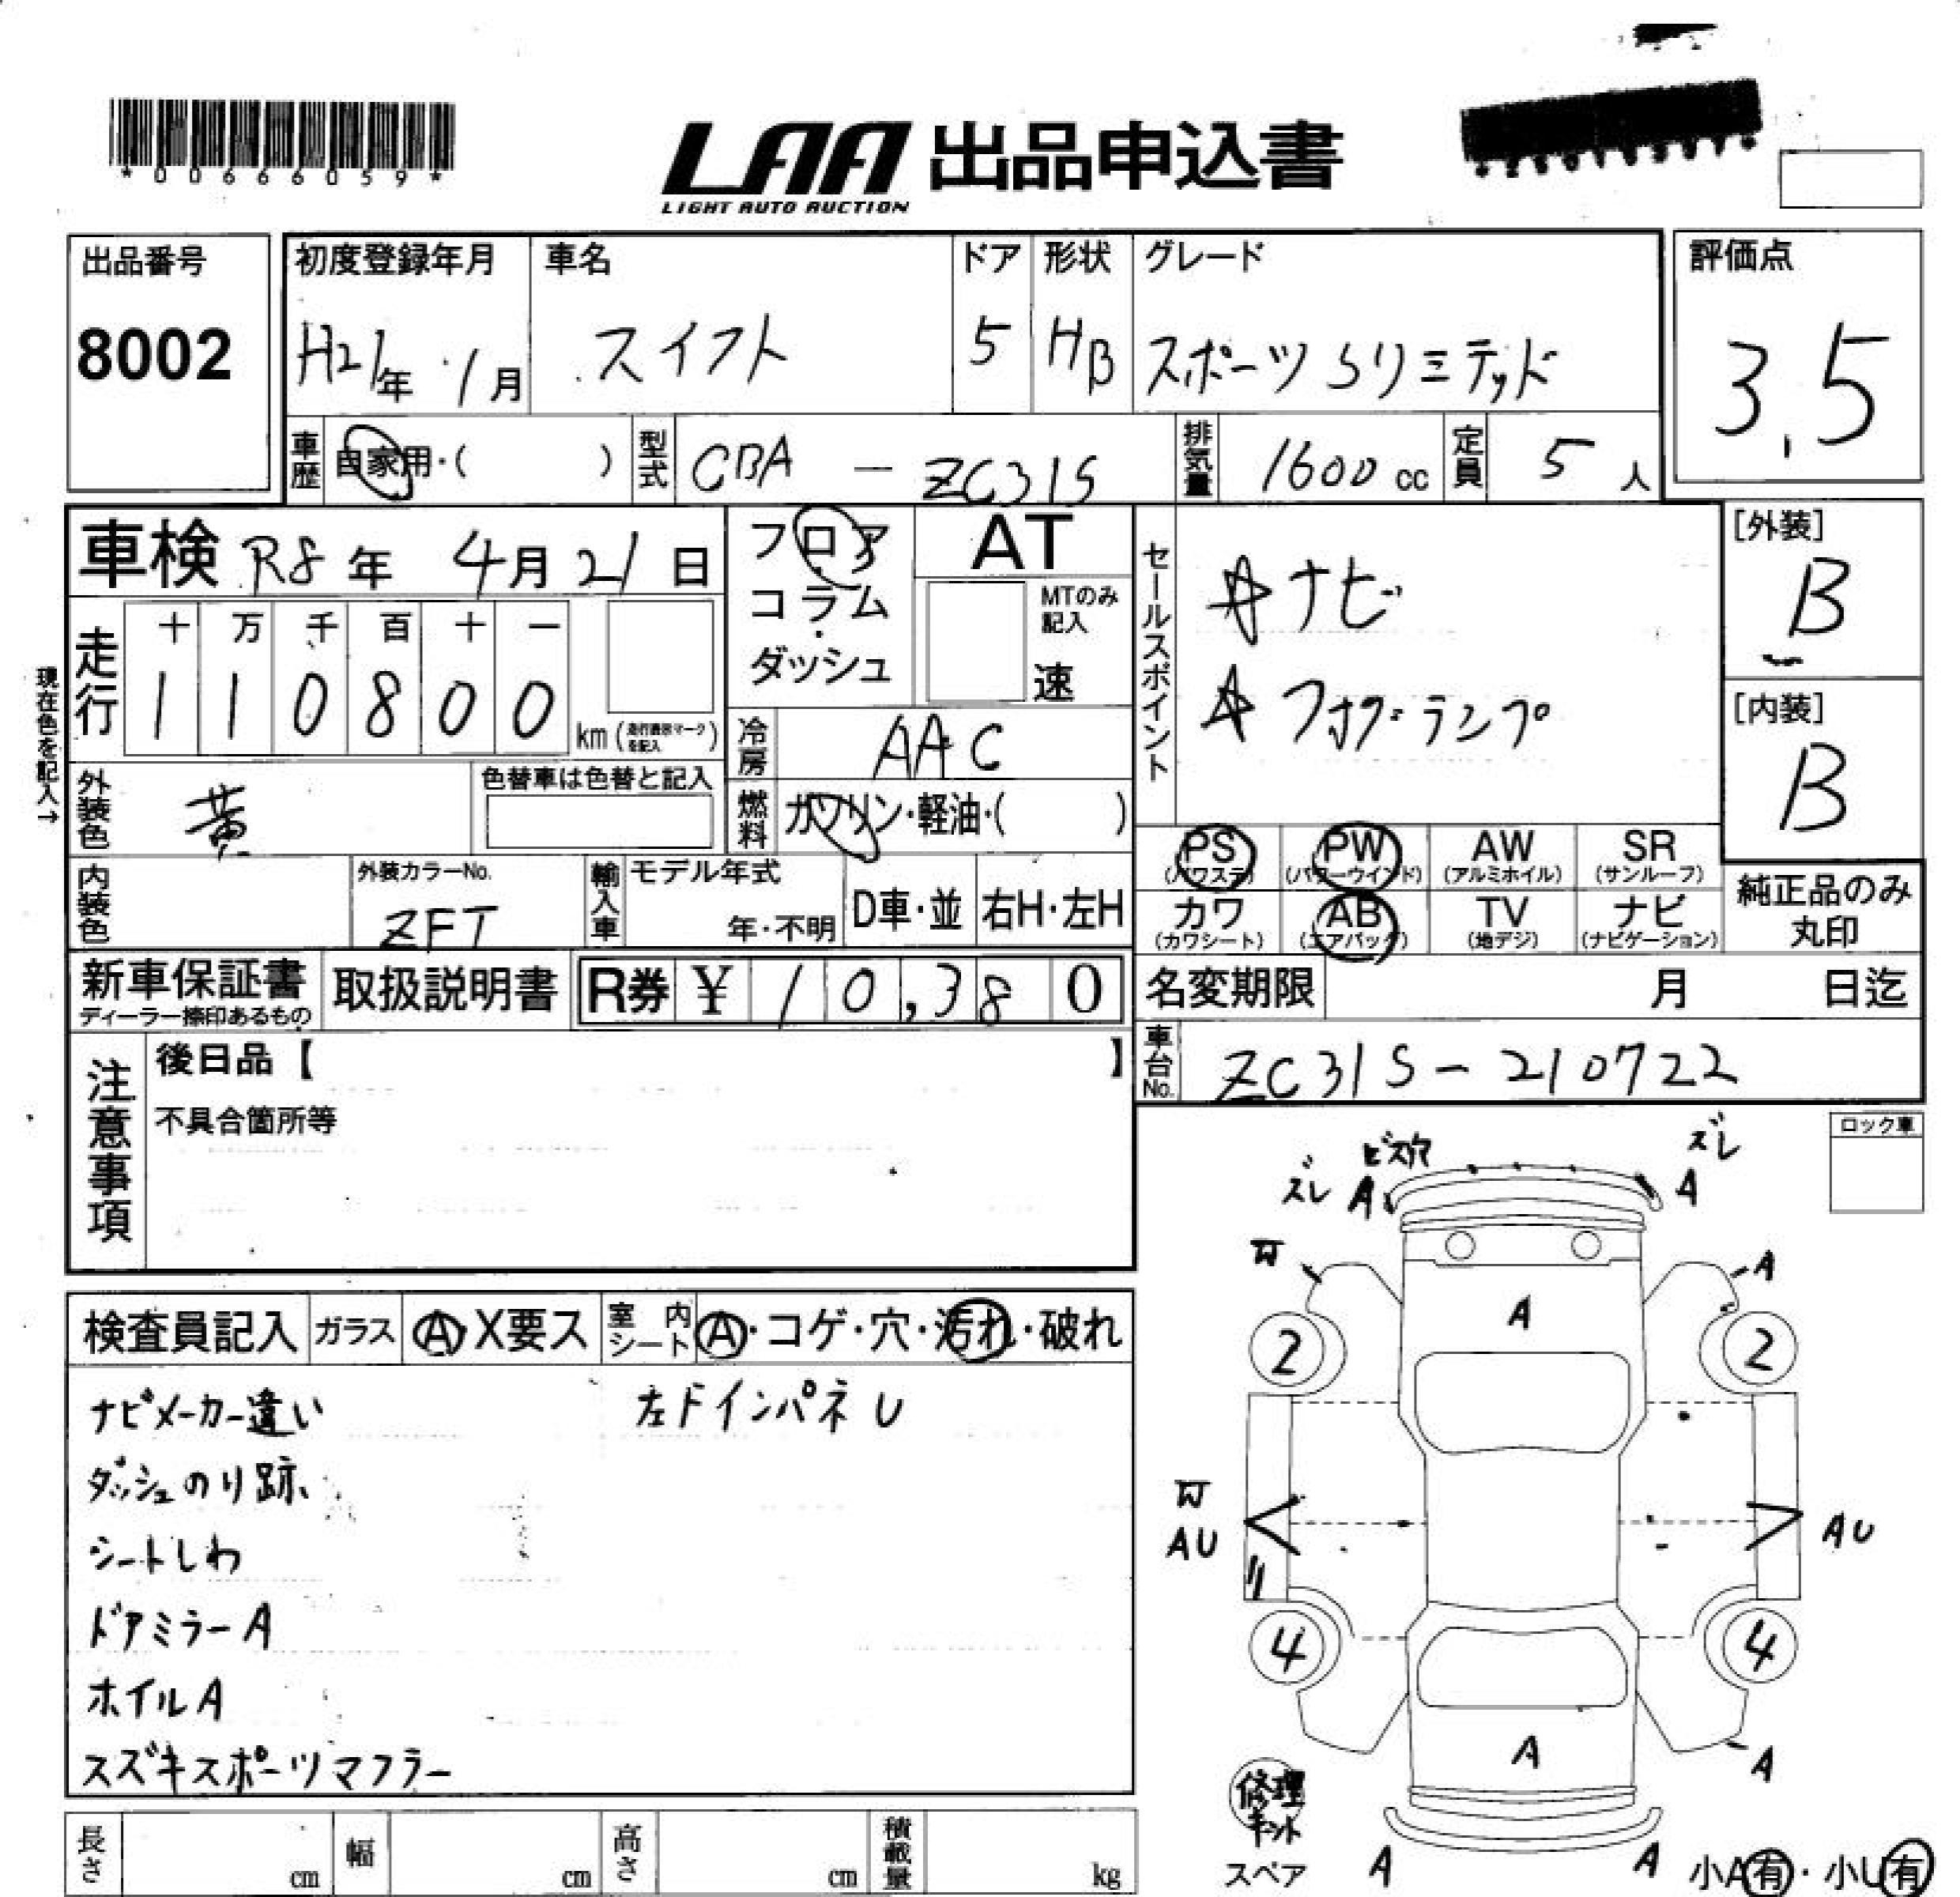 *00666059*
LAA 出品申込書
LIGHT AUTO AUCTION
出品番号
8002
初度登録年月
H21年 1月
車名
スイフト
ドア
5
形状
HB
グレード
スポーツ Sリミテッド
評価点
3.5
車歴 自家用・( )
型式 CBA - ZC31S
排気量 1600 cc
定員 5 人
車検 R8年 4月21日
フロア
コラム
・
ダッシュ
AT
MTのみ
記入
速
セールスポイント
☆ナビ
☆フォグランプ
[外装]
B
[内装]
B
現在色を記入→
走行
十 万 千 百 十 一
1 1 0 8 0 0
km
冷房 AAC
外装色 黄
色替車は色替と記入
燃料 ガソリン・軽油・( )
PS
(パワステ)
PW
(パワーウインド)
AW
(アルミホイル)
SR
(サンルーフ)
カワ
(カワシート)
AB
(エアバッグ)
TV
(地デジ)
ナビ
(ナビゲーション)
純正品のみ
丸印
内装色
外装カラーNo.
ZFT
輸入車
モデル年式
年・不明
D車・並
右H・左H
新車保証書
ディーラー捺印あるもの
取扱説明書
R券 ¥ 10,380
名変期限 月 日迄
車台No. ZC31S-210722
注意事項
後日品【 】
不具合箇所等
ロック車
ビス穴
ズレ A
ズレ
A
W
A
A
2
2
W
AU
AU
4
4
A
A
修理
キット
スペア
A
A
小A有・小U有
検査員記入
ガラス A X要ス
室内シート A・コゲ・穴・汚れ・破れ
ナビメーカー違い
左ドインパネU
ダッシュのり跡
シートしわ
ドアミラーA
ホイルA
スズキスポーツマフラー
長さ cm
幅 cm
高さ cm
積載量 kg